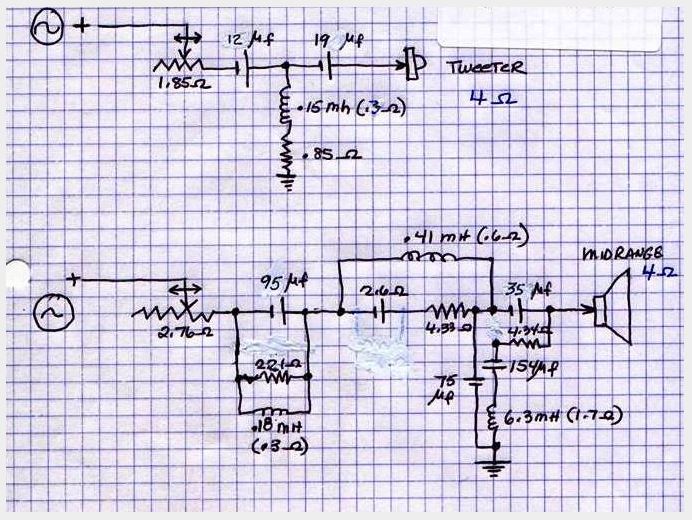 +
12 μf
19 μf
1.85Ω
TWEETER
4 Ω
.15 mh (.3Ω)
.85Ω
.41 mH (.6Ω)
MIDRANGE
4Ω
+
95 μf
2.6Ω
35 μf
2.76Ω
4.33Ω
4.34Ω
221Ω
75
μf
154μf
.18 mH
(.3Ω)
6.3mH (1.7Ω)